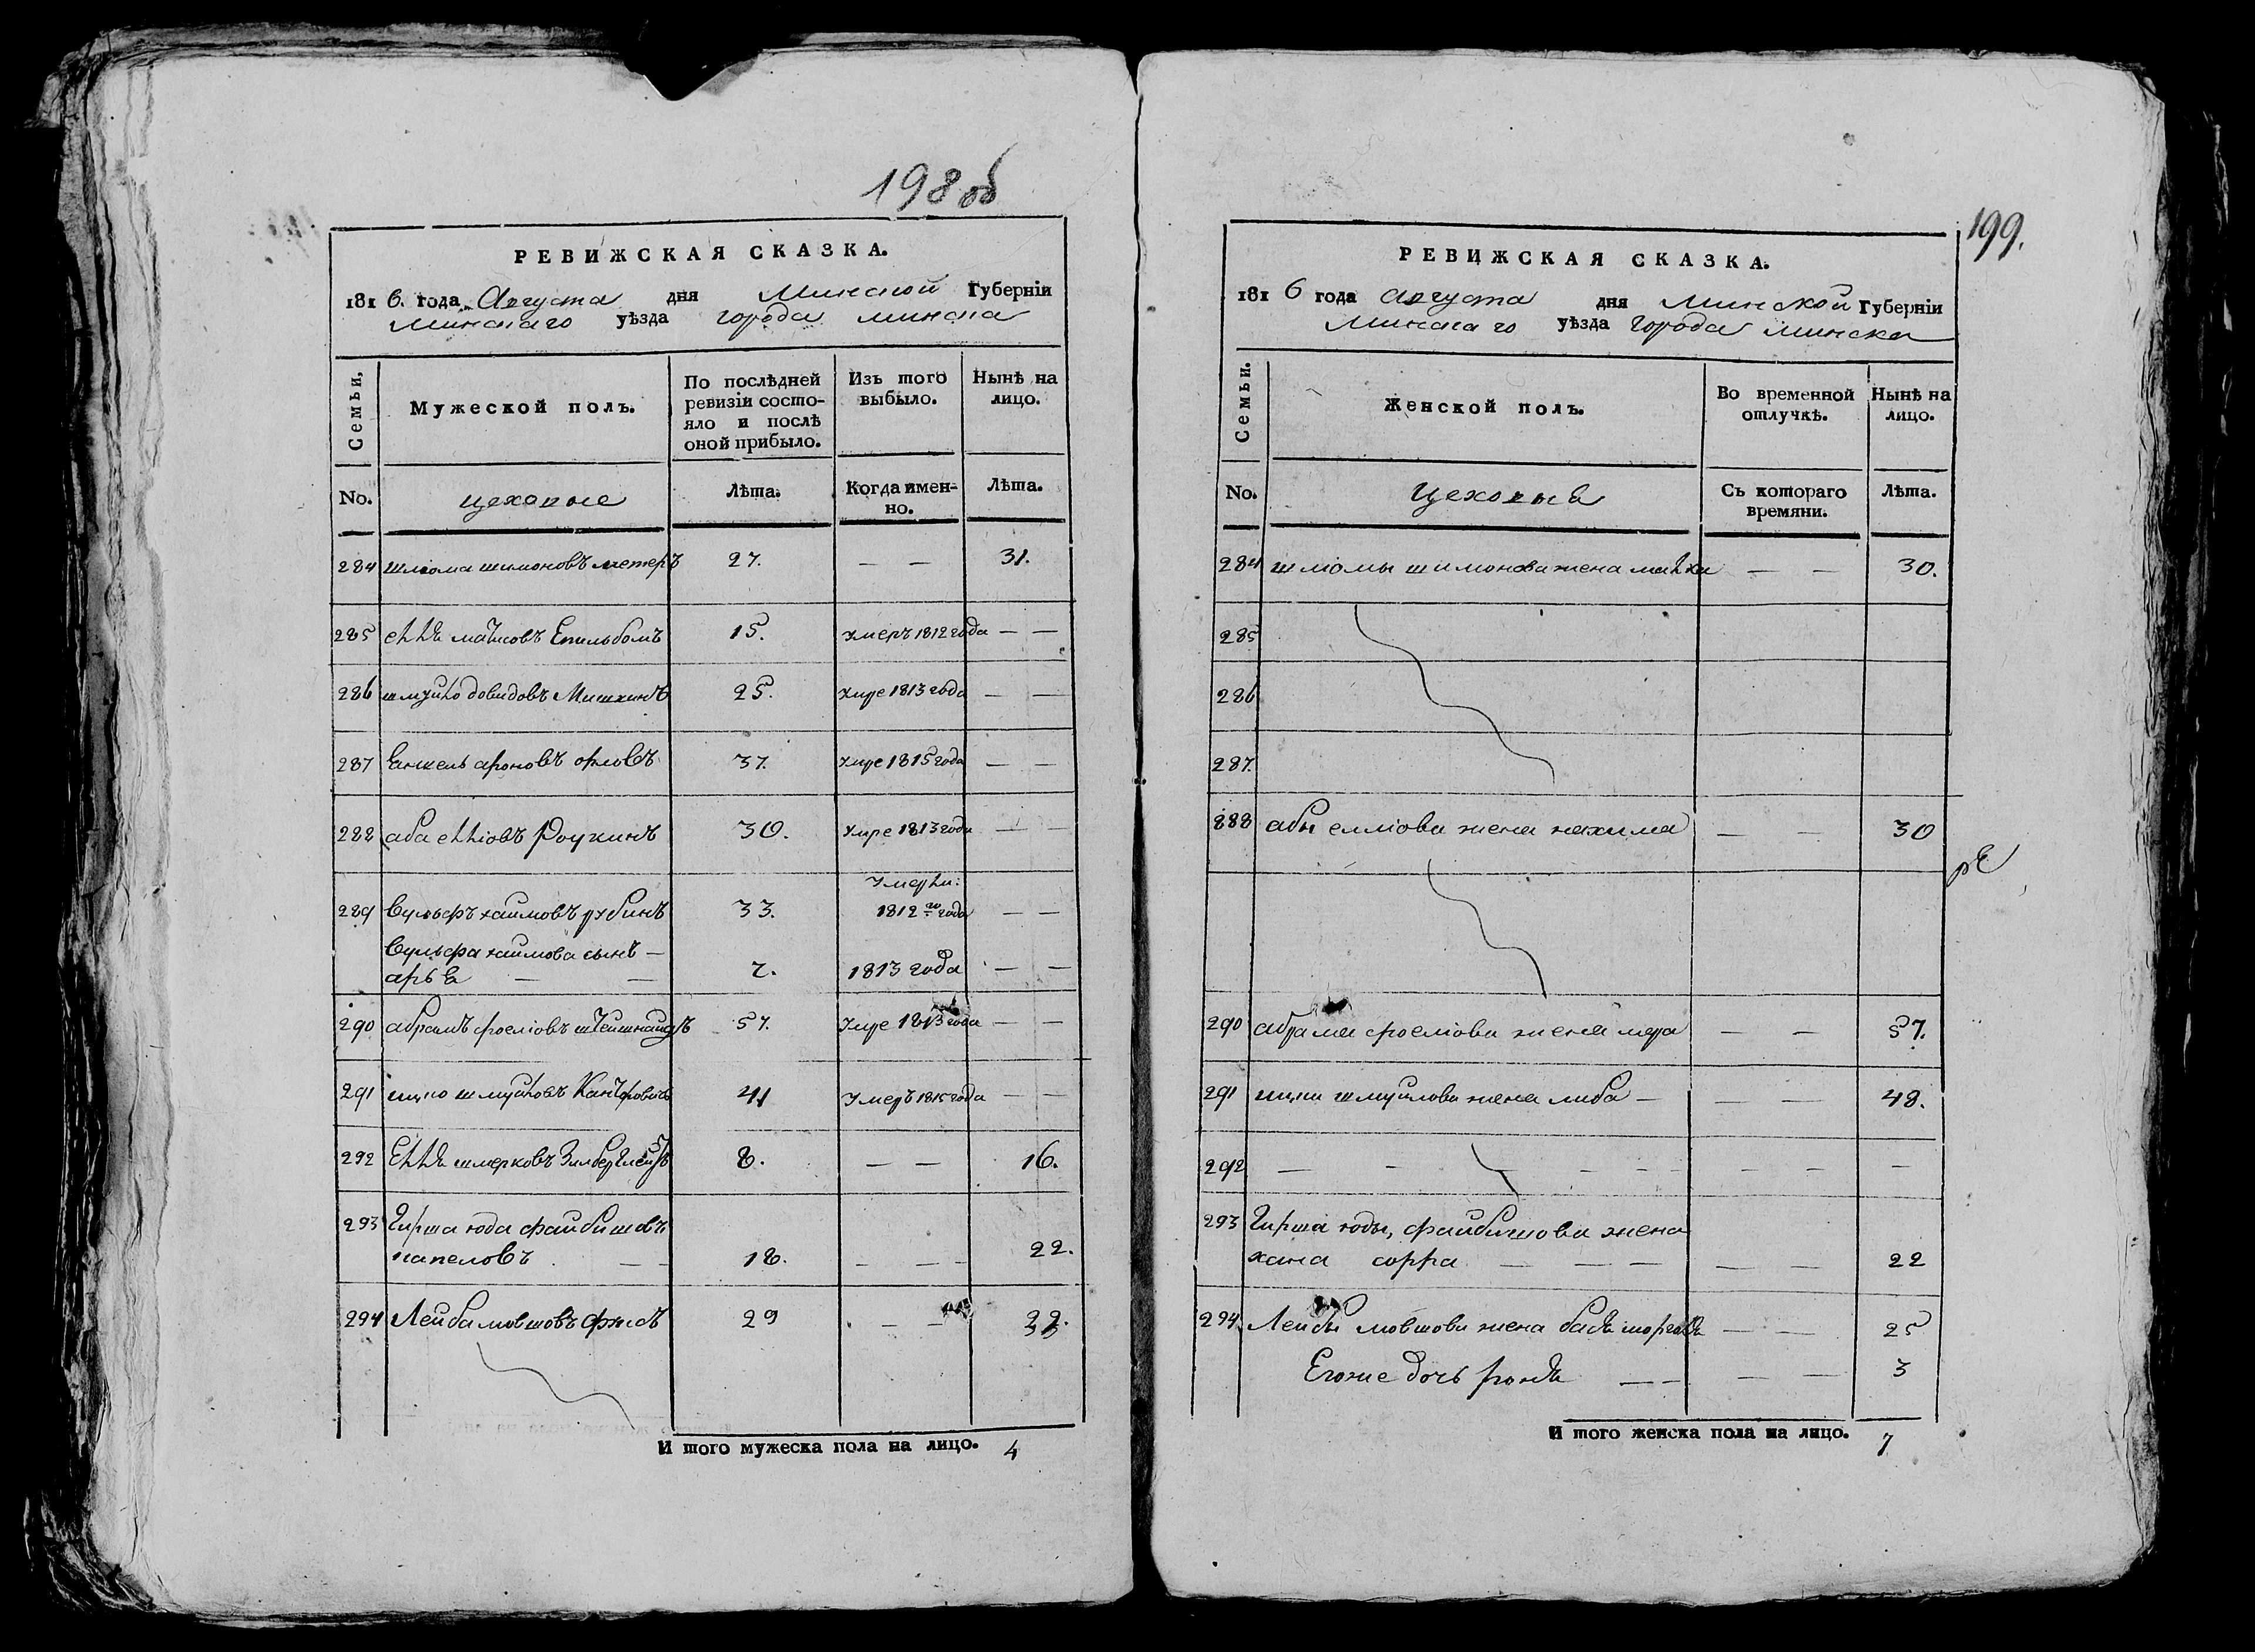 198 об
РЕВИЖСКАЯ СКАЗКА.
181 6. года Августа дня Минской Губерніи
Минскаго уѣзда города минска
Семьи,
Мужеской полъ.
По послѣдней ревизіи состояло и послѣ оной прибыло.
Изъ того выбыло.
Нынѣ на лицо.
No.
цеховые
Лѣта.
Когда имен-
но.
Лѣта.
284 шліома шимоновъ 27. — — 31.
285 еллѣ 15. умеръ 1812 года — —
286 шмуйло довидовъ Мишкинъ 25. умре 1813 года — —
287 Енкель ароновъ орловъ 37. умре 1815 года — —
288 аба елліовъ Роускинъ 30. умре 1813 года — —
умерли:
289 Вульфъ хаимовъ рубинъ 33. 1812 го года — —
Вульфа хаимова сынъ —
арье — — 2. 1813 года — —
290 абрамъ фроеліовъ 57. умре 1813 года — —
291 ицко шмуйловъ Канторовичъ 41 умеръ 1815 года — —
292 Еллѣ шмерковъ 8. — — 16.
293 Гирша юда файбишовъ
капеловъ — — 18. — — — 22.
294 Лейба мовшовъ 29 — — 33.
И того мужеска пола на лицо. 4
199.
РЕВИЖСКАЯ СКАЗКА.
181 6 года августа дня Минской Губерніи
Минскаго уѣзда города минска
Семьи.
Женской полъ.
Во временной отлучкѣ.
Нынѣ на лицо.
No.
Цеховые
Съ котораго
времяни.
Лѣта.
284 шліомы шимонова жена малка — — 30.
285
286
287.
288 абы елліова жена нахима — — 30
290 абрама фроеліова жена мера — — 57.
291 ицки шмуйлова жена либа — — — 48.
292 — — — — — — — — —
293 Гирша юды, файбишова жена
хана сорра — — — — — 22
294 Лейбы мовшова жена — — 25
Егоже дочь — — — — 3
И того женска пола на лицо. 7